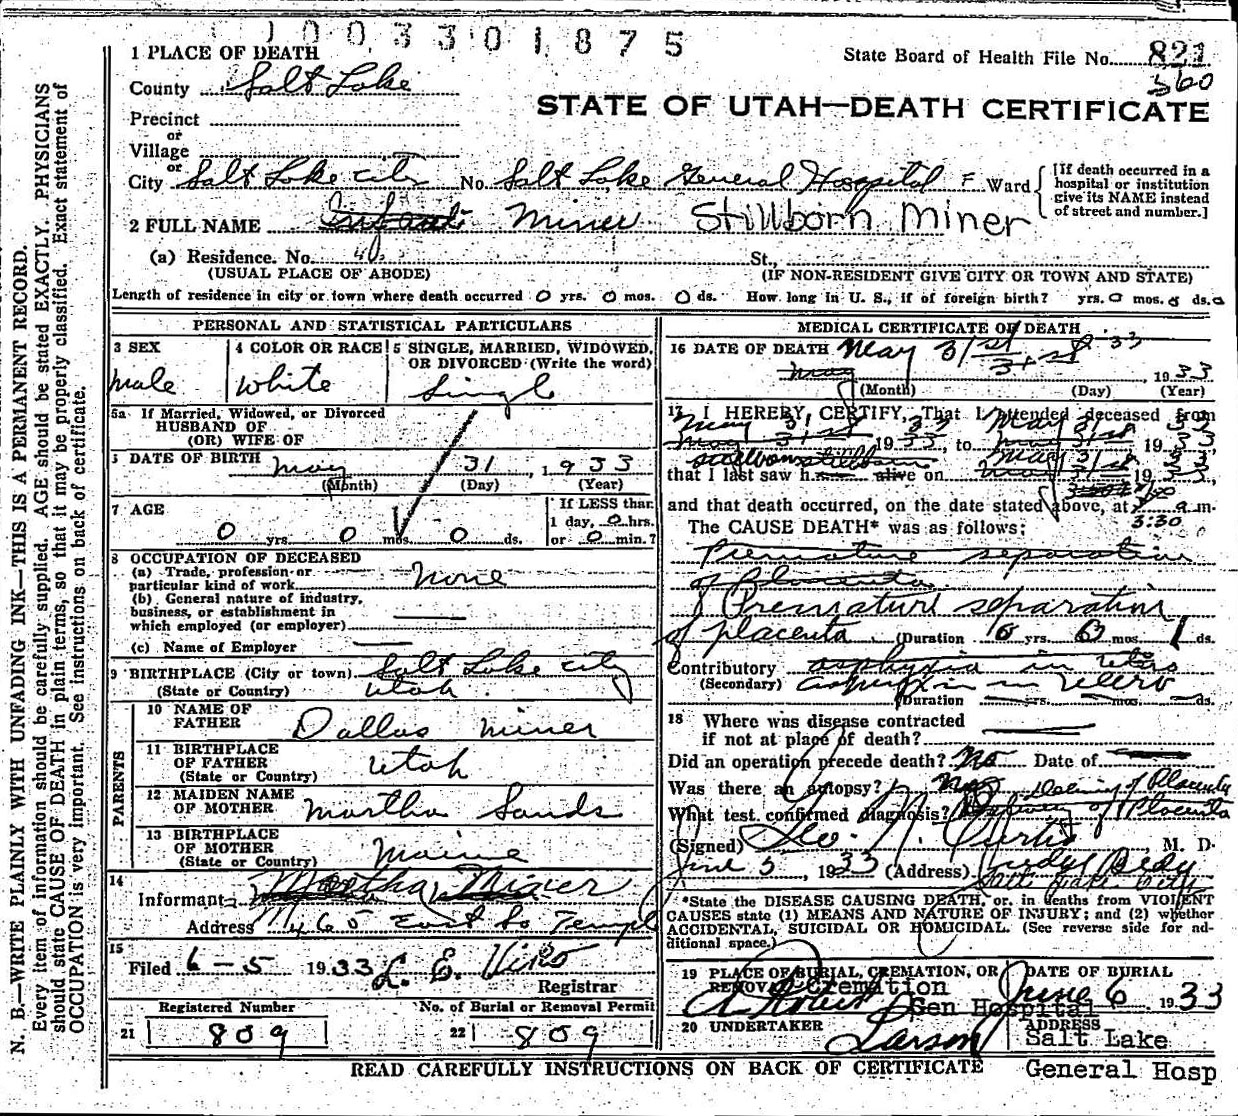 1003301875
1 PLACE OF DEATH
State Board of Health File No. 821
360
County Salt Lake
STATE OF UTAH—DEATH CERTIFICATE
Precinct
or
Village
or
City Salt Lake City No. Salt Lake General Hospital F Ward
[If death occurred in a hospital or institution give its NAME instead of street and number.]
2 FULL NAME Infant Miner Stillborn Miner
(a) Residence. No. St.,
(USUAL PLACE OF ABODE) (IF NON-RESIDENT GIVE CITY OR TOWN AND STATE)
Length of residence in city or town where death occurred 0 yrs. 0 mos. 0 ds. How long in U. S., if of foreign birth? yrs. 0 mos. 0 ds. 0
PERSONAL AND STATISTICAL PARTICULARS
3 SEX
male
4 COLOR OR RACE
white
5 SINGLE, MARRIED, WIDOWED, OR DIVORCED (Write the word)
Single
5a If Married, Widowed, or Divorced
HUSBAND OF
(OR) WIFE OF
DATE OF BIRTH May 31, 1933
(Month) (Day) (Year)
7 AGE
0 yrs. 0 mos. 0 ds.
If LESS than
1 day, 0 hrs.
or 0 min.?
8 OCCUPATION OF DECEASED
(a) Trade, profession or
particular kind of work none
(b) General nature of industry,
business, or establishment in
which employed (or employer)
(c) Name of Employer
9 BIRTHPLACE (City or town) Salt Lake City
(State or Country) Utah
PARENTS
10 NAME OF
FATHER Dallas Miner
11 BIRTHPLACE
OF FATHER
(State or Country) Utah
12 MAIDEN NAME
OF MOTHER Martha Sands
13 BIRTHPLACE
OF MOTHER
(State or Country) Maine
14
Informant Martha Miner
Address East So Temple
15
Filed 6-5 1933 L. E. Viko
Registrar
Registered Number No. of Burial or Removal Permit
21 809 22 809
MEDICAL CERTIFICATE OF DEATH
16 DATE OF DEATH May 31st 33
May 31st, 1933
(Month) (Day) (Year)
17 I HEREBY CERTIFY, That I attended deceased from
May 31st 33 May 31st
May 31st 1933, to May 31st 1933
stillborn stillborn May 31st
that I last saw h alive on May 31st 19
and that death occurred, on the date stated above, at a m.
3:30
The CAUSE DEATH* was as follows:
Premature separation
of Placenta
Premature separation
of placenta (Duration yrs. mos. ds.
Contributory asphyxia in utero
(Secondary) asphyxia in utero
(Duration yrs. mos. ds.
18 Where was disease contracted
if not at place of death?
Did an operation precede death? No Date of
Was there an autopsy? No Delivery of Placenta
What test confirmed diagnosis? Delivery of Placenta
(Signed) Leo. N. Curtis M. D.
June 5, 1933 (Address) Judge Bldg
Salt Lake City
*State the DISEASE CAUSING DEATH, or, in deaths from VIOLENT
CAUSES state (1) MEANS AND NATURE OF INJURY; and (2) whether
ACCIDENTAL, SUICIDAL OR HOMICIDAL. (See reverse side for additional space.)
19 PLACE OF BURIAL, CREMATION, OR
REMOVAL Cremation
Gen Hospital
DATE OF BURIAL
June 6 1933
20 UNDERTAKER
Larson
ADDRESS
Salt Lake
General Hosp
READ CAREFULLY INSTRUCTIONS ON BACK OF CERTIFICATE
N. B.—WRITE PLAINLY WITH UNFADING INK—THIS IS A PERMANENT RECORD.
Every item of information should be carefully supplied. AGE should be stated EXACTLY. PHYSICIANS
should state CAUSE OF DEATH in plain terms, so that it may be properly classified. Exact statement of
OCCUPATION is very important. See instructions on back of certificate.